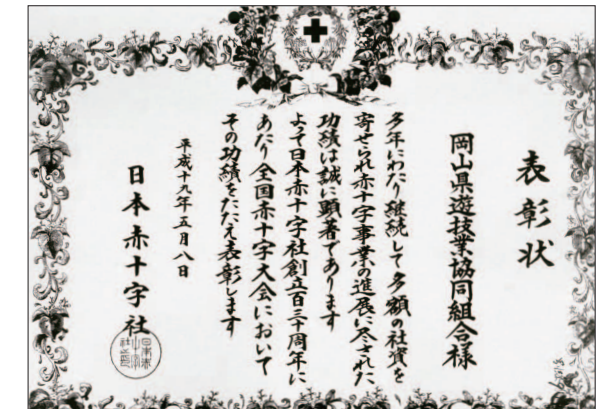 表彰状
岡山県遊技業協同組合様
多年にわたり継続して多額の社資を
寄せられ赤十字事業の進展に尽された
功績は誠に顕著であります
よって日本赤十字社創立百三十周年に
あたり全国赤十字大会において
その功績をたたえ表彰します
平成十九年五月八日
日本赤十字社